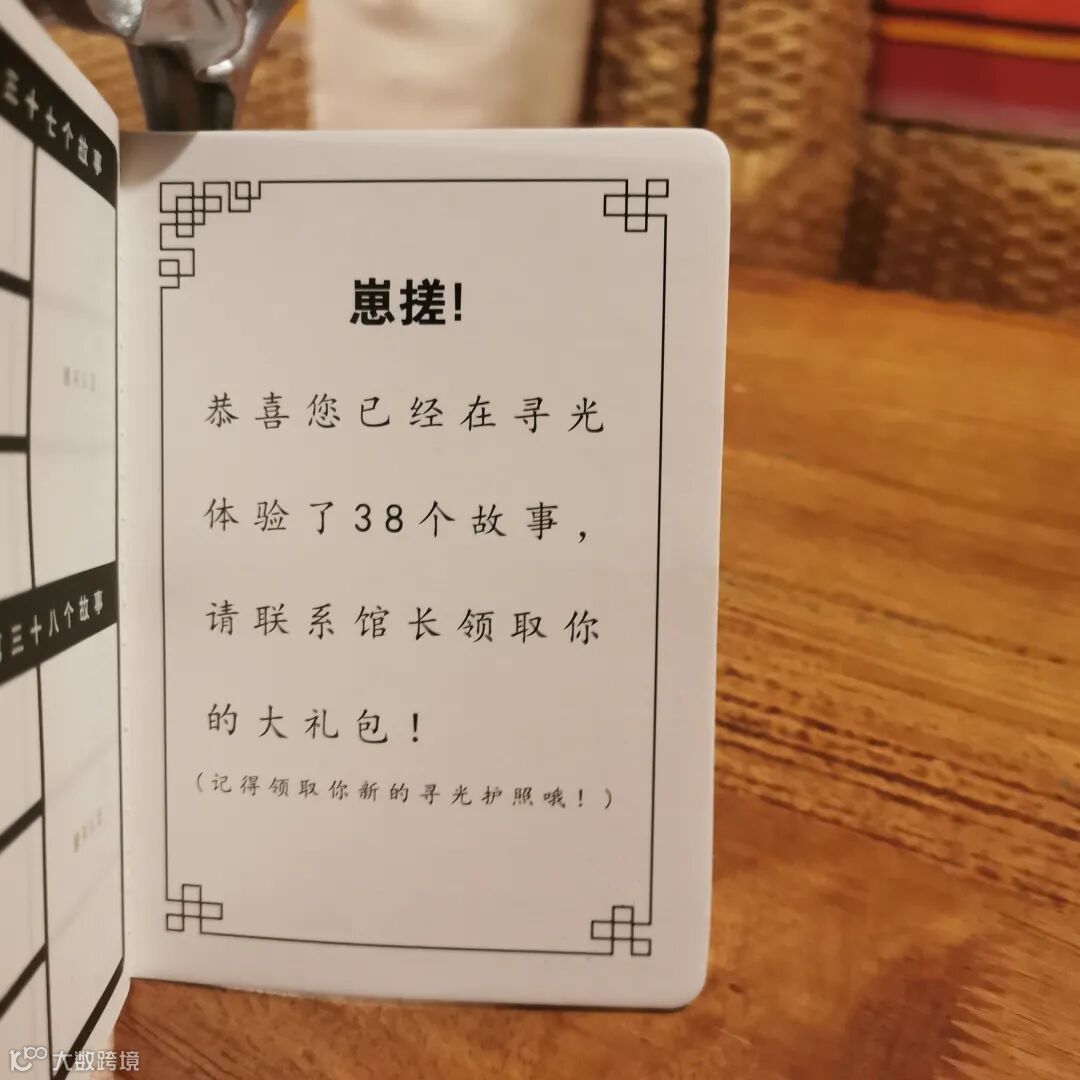 三十七个故事
三十八个故事
崽搓!
恭喜您已经在寻光
体验了38个故事，
请联系馆长领取你
的大礼包！
（记得领取你新的寻光护照哦！）
大数跨境